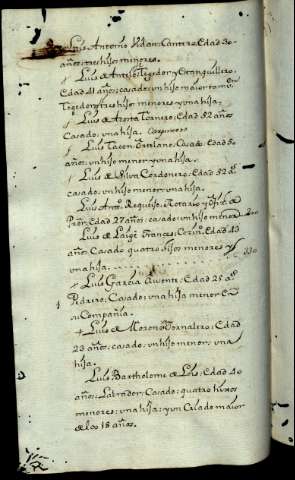 Luis Antonio Vidon: Cantero: Edad 30
años: tres hijos menores.
Luis de Texedor y Granquillero:
Edad 41 años: casado: un hijo maior tom.en
Texedor: tres hijos menores y una hija.
Luis de Tornero: Edad 52 años
Casado, una hija.
Luis Tacon: Ortelano: Casado: Edad 50
años: un hijo menor y una hija.
Luis de Silva: Cordonero: Edad 52 a.s
casado: un hijo menor: una hija.
Luis Ant.o Requejo: Notario y Ofiz.l de
Pror: Edad 27 años: casado: un hijo menor
Luis de Laige: Frances: Edad 43
años: Casado: quatro hijos menores y
una hija
Luis Garcia Edad 25 a.s
Casado: una hija menor En
su Compañia.
Luis de Moreno: Jornalero: Edad
23 años: casado: un hijo menor: una
hija.
Luis Bartholome de Edad 40
años: Labrador: Casado: quatro hixos
menores: una hija: y un Criado maior
de los 18 años.